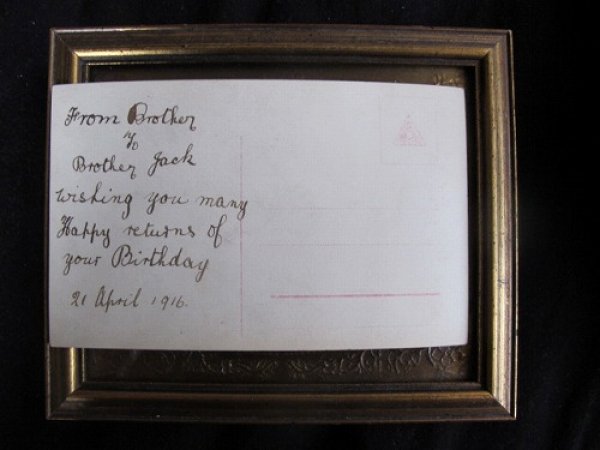 From Brother
To
Brother Jack
wishing you many
Happy returns of
your Birthday
21 April 1916.